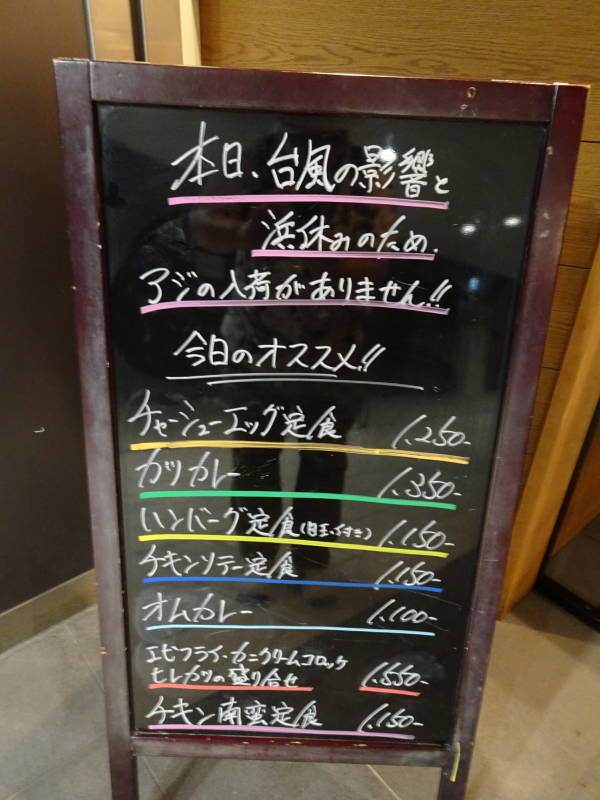 本日、台風の影響と
浜休みのため、
アジの入荷がありません!!
今日のオススメ!!
チャーシューエッグ定食 1.250-
カツカレー 1.350-
ハンバーグ定食(目玉つき) 1.150-
チキンソテー定食 1.150-
オムカレー 1.100-
エビフライ・カニクリームコロッケ
ヒレカツの盛り合せ 1.550-
チキン南蛮定食 1.150-